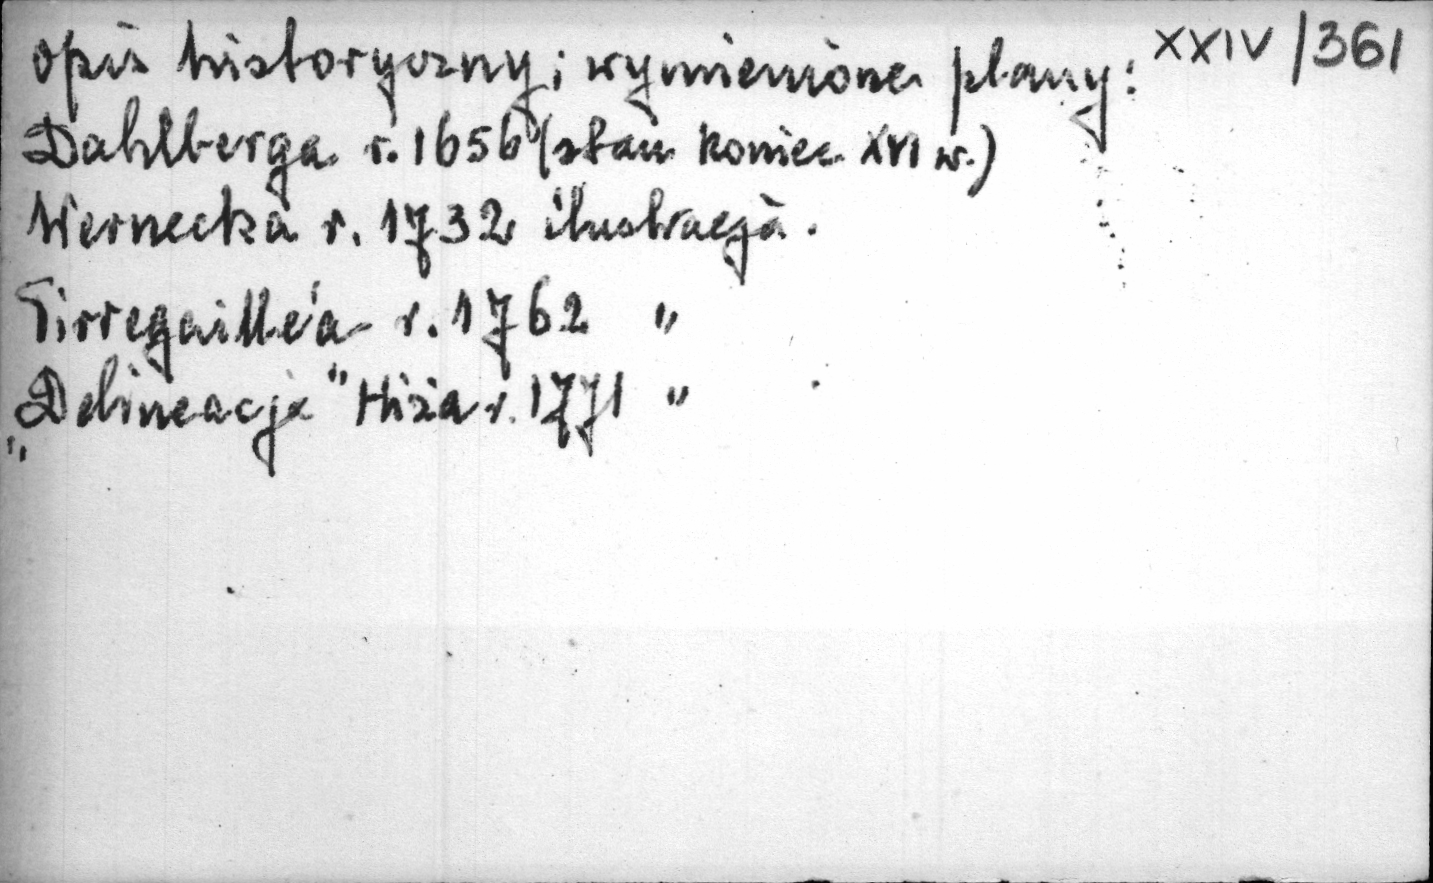 opis historyczny; wymienione plany: XXIV/361
Dahlberga r. 1656 (stan koniec XVI w.)
Wernecka r. 1732 ilustracja.
Tirregaille'a r. 1762 "
„Delineacja" Hiża r. 1771 "